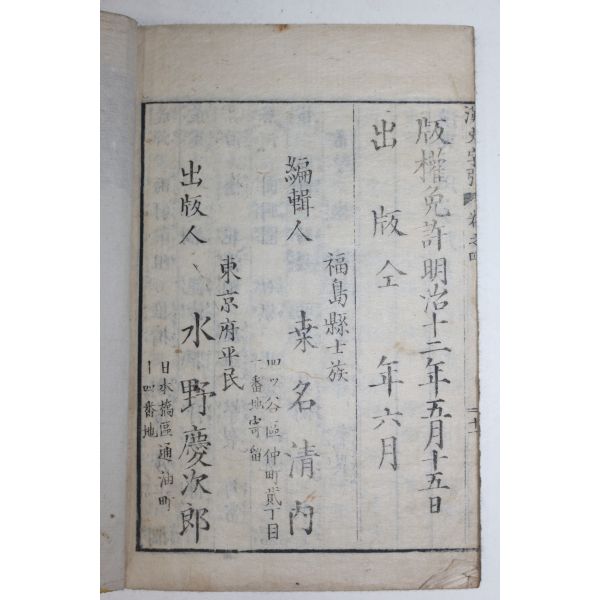 版權免許明治十二年五月十五日
出版仝年六月
福島縣士族
編輯人 桒名清内
四ッ谷區仲町貳丁目
一番地寄留
東京府平民
出版人 水野慶次郎
日本橋區通油町
十四番地